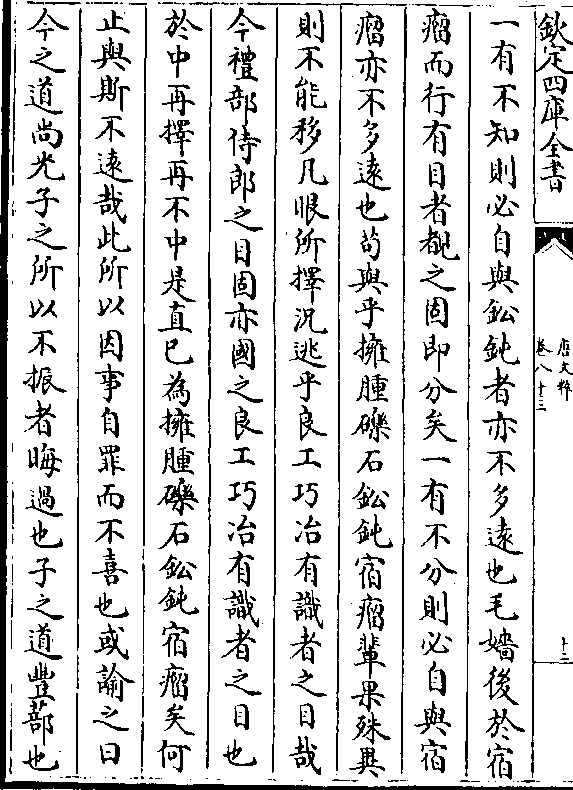 欽定四庫全書
唐文粹
卷八十三
十三
一有不知則必自與鈆鈍者亦不多逺也毛嬙後於宿
瘤而行有目者覩之固即分矣一有不分則必自與宿
瘤亦不多逺也苟與乎擁腫礫石鈆鈍宿瘤輩果殊異
則不能移凡眼所擇況逃乎良工巧冶有識者之目哉
今禮部侍郎之目固亦國之良工巧冶有識者之目也
於中再擇再不中是直已為擁腫礫石鈆鈍宿瘤矣何
止與斯不逺哉此所以因事自罪而不喜也或諭之曰
今之道尚光子之所以不振者晦過也子之道豐蔀也